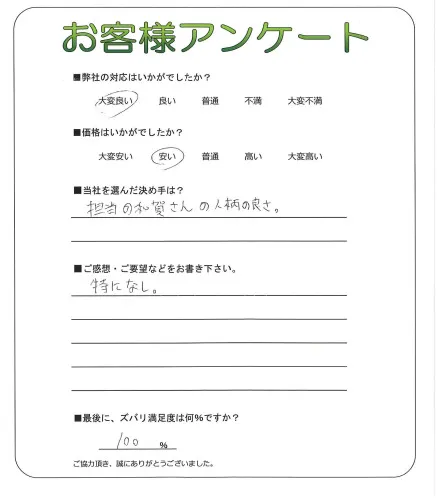 お客様アンケート
■弊社の対応はいかがでしたか？
大変良い 良い 普通 不満 大変不満
■価格はいかがでしたか？
大変安い 安い 普通 高い 大変高い
■当社を選んだ決め手は？
担当の和賀さんの人柄の良さ。
■ご感想・ご要望などをお書き下さい。
特になし。
■最後に、ズバリ満足度は何％ですか？
100 ％
ご協力頂き、誠にありがとうございました。